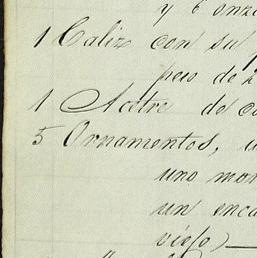 y 6 onz
1 Caliz con su p
peso de 2
1 Acetre de co
5 Ornamentos, u
uno mor
un enca
viejo)